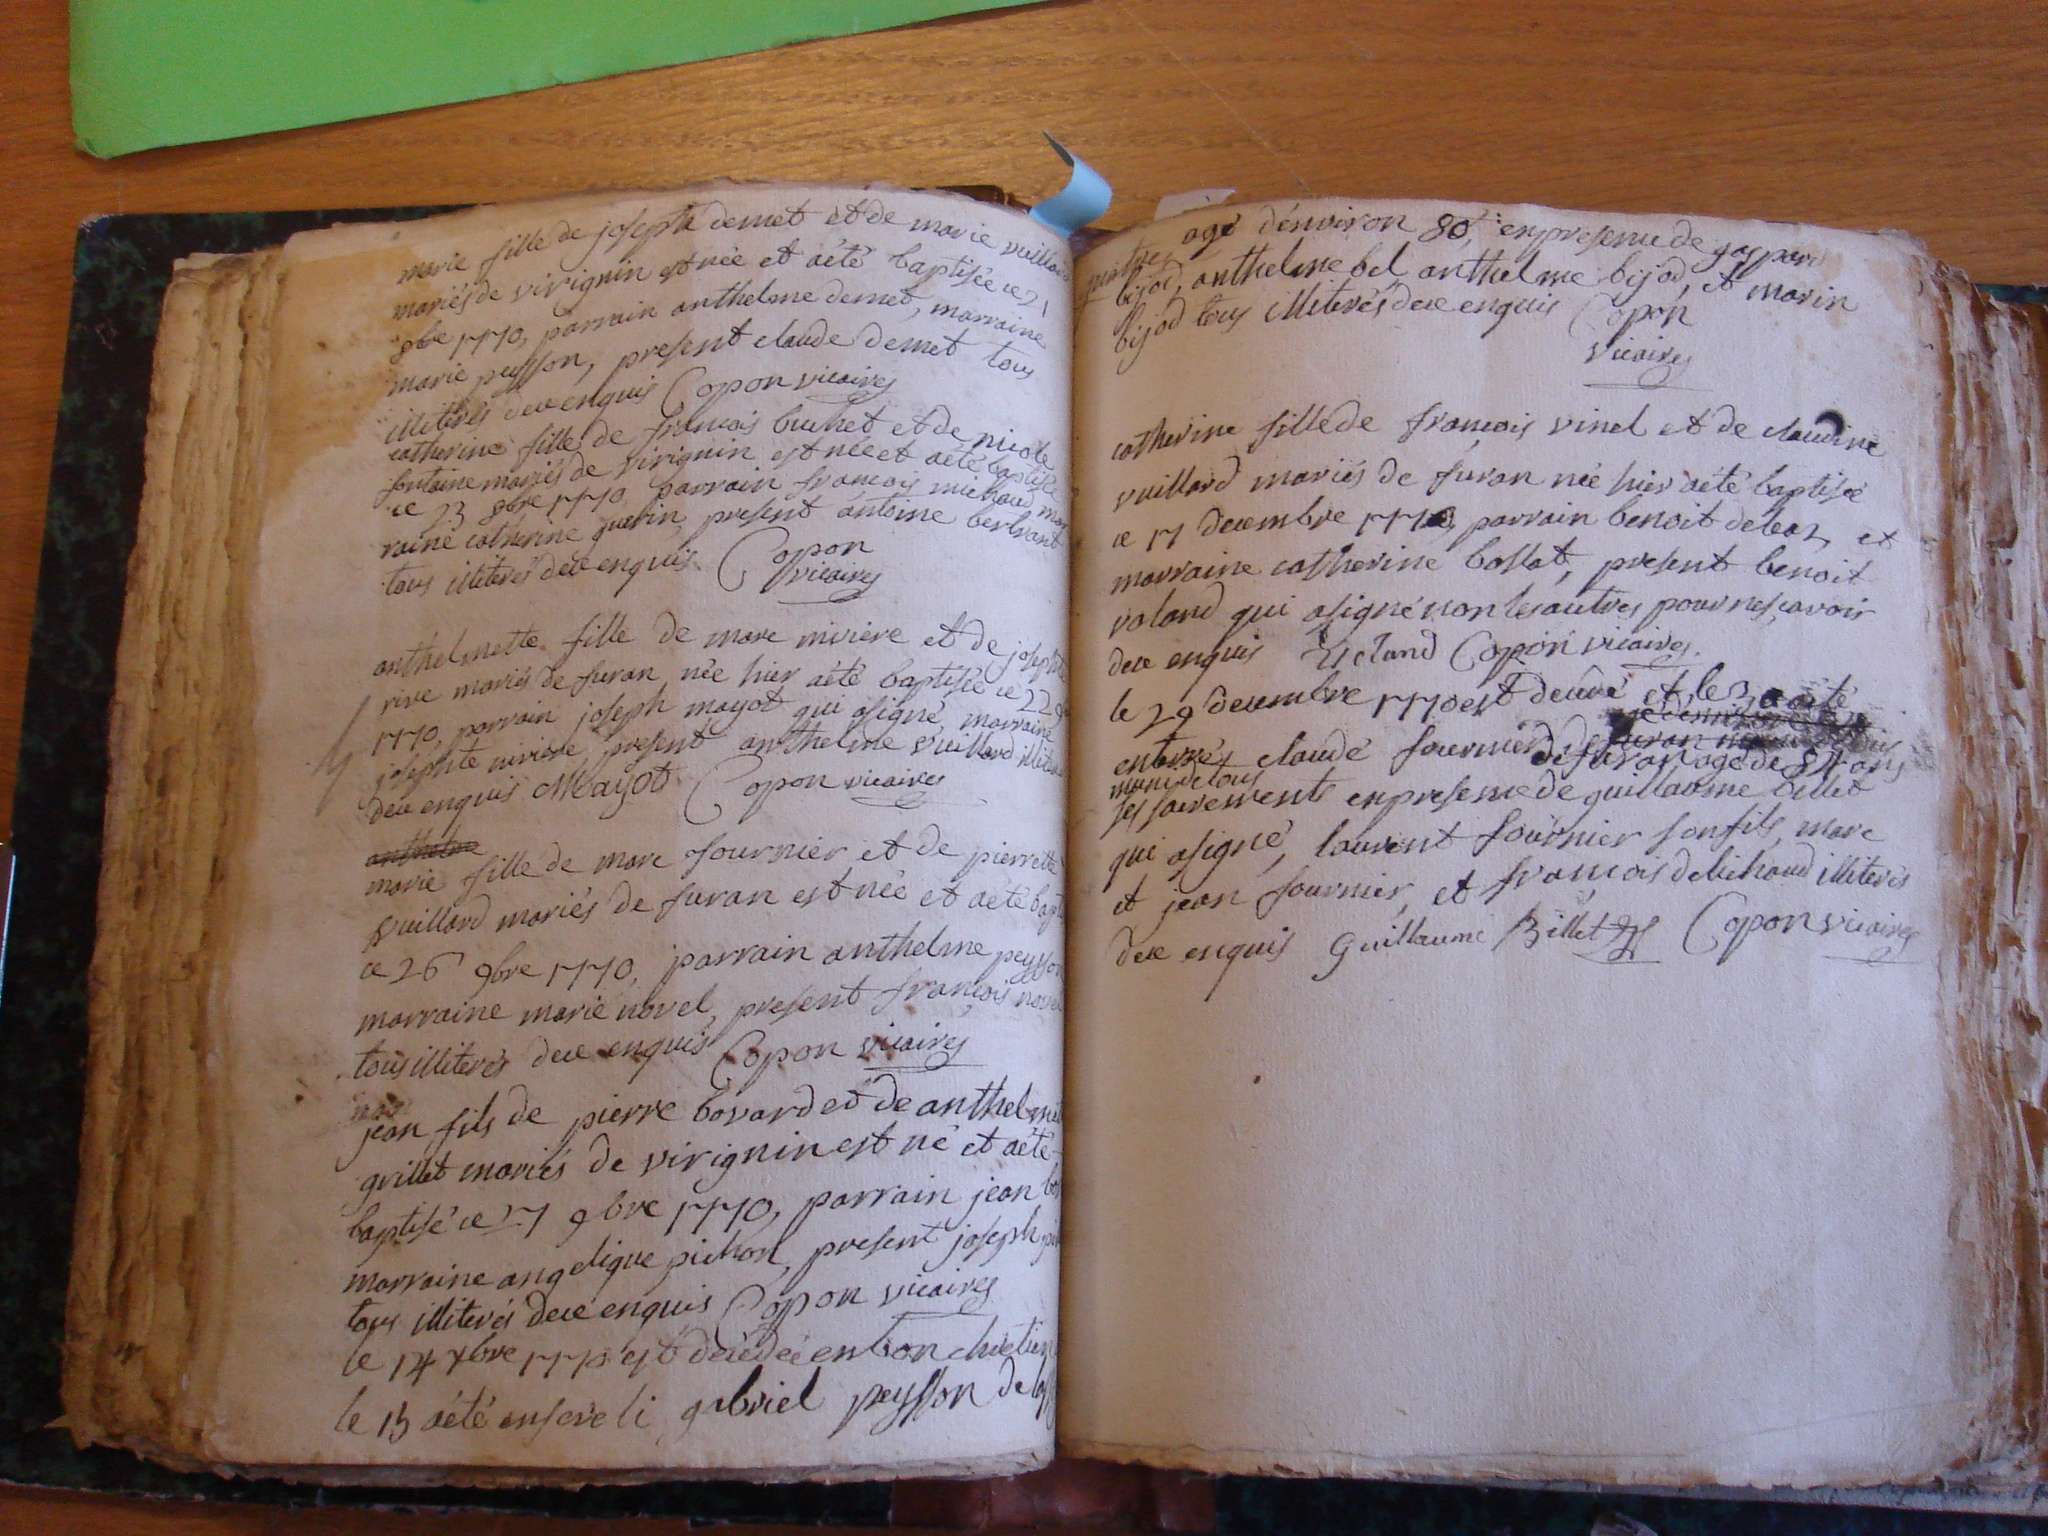 marie fille de joseph demet et de marie vuillard
mariés de virignin est née et aété baptisée ce 21
8bre 1770, parrain anthelme demet, marraine
marie peysson, present claude demet tous
illiterés dece enquis Copon vicaires
catherine fille de francois buchet et de nicole
fontaine mariés de virignin est née et aété baptisée
ce 23 8bre 1770, parrain francois michaud mar
raine catherine guerin, present antoine berthant
tous illiterés dece enquis Copon
vicaires
anthelmette fille de marc niviere et de josephte
rive mariés de furan née hier aété baptisée ce 22 9
1770, parrain joseph mayot qui asigné, marraine
josephte niviere present anthelme vuillard illiterés
dece enquis Mayot Copon vicaires
anthelme
marie fille de marc fournier et de pierrette
vuillard mariés de furan est née et aété bapt
ce 26 9bre 1770, parrain anthelme peysson
marraine marie novel, present françois novel
tous illiterés dece enquis Copon vicaires
jean fils de pierre bovard et de anthelmette
grillet mariés de virignin est né et aété
baptisé ce 27 9bre 1770, parrain jean bo
marraine angelique pichon, present joseph pi
tous illiterés dece enquis Copon vicaires
le 14 xbre 1770 est decedé en bon chretien
le 15 aété enseveli gabriel peysson de
agé d'environ 80, en presence de gaspard
bijod, anthelme bel anthelme bijod, et marin
bijod tous illiterés dece enquis Copon
vicaires
catherine fille de françois vinel et de claudine
vuillard mariés de furan née hier aété baptisée
ce 17 decembre 1770, parrain benoit deleaz et
marraine catherine bollat, present benoit
voland qui asigné non les autres pour ne sçavoir
dece enquis Voland Copon vicaires.
le 29 decembre 1770 est decedé et le 30 aété
enterré claude fournier de furan agé de 84 ans
muni de tous
ses sacrements en presence de guillaume billet
qui asigné, laurent fournier son fils, marc
et jean fournier, et françois delichaud illiterés
dece enquis Guillaume Billet Copon vicaires